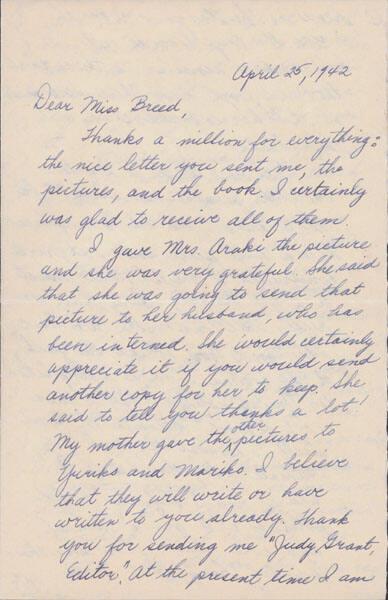 April 25, 1942
Dear Miss Breed,
Thanks a million for everything:
the nice letter you sent me, the
pictures, and the book. I certainly
was glad to receive all of them.
I gave Mrs. Araki the picture
and she was very grateful. She said
that she was going to send that
picture to her husband, who has
been interned. She would certainly
appreciate it if you would send
another copy for her to keep. She
said to tell you thanks a lot!
My mother gave the other pictures to
Yuriko and Mariko. I believe
that they will write or have
written to you already. Thank
you for sending me "Judy Grant,
Editor". At the present time I am